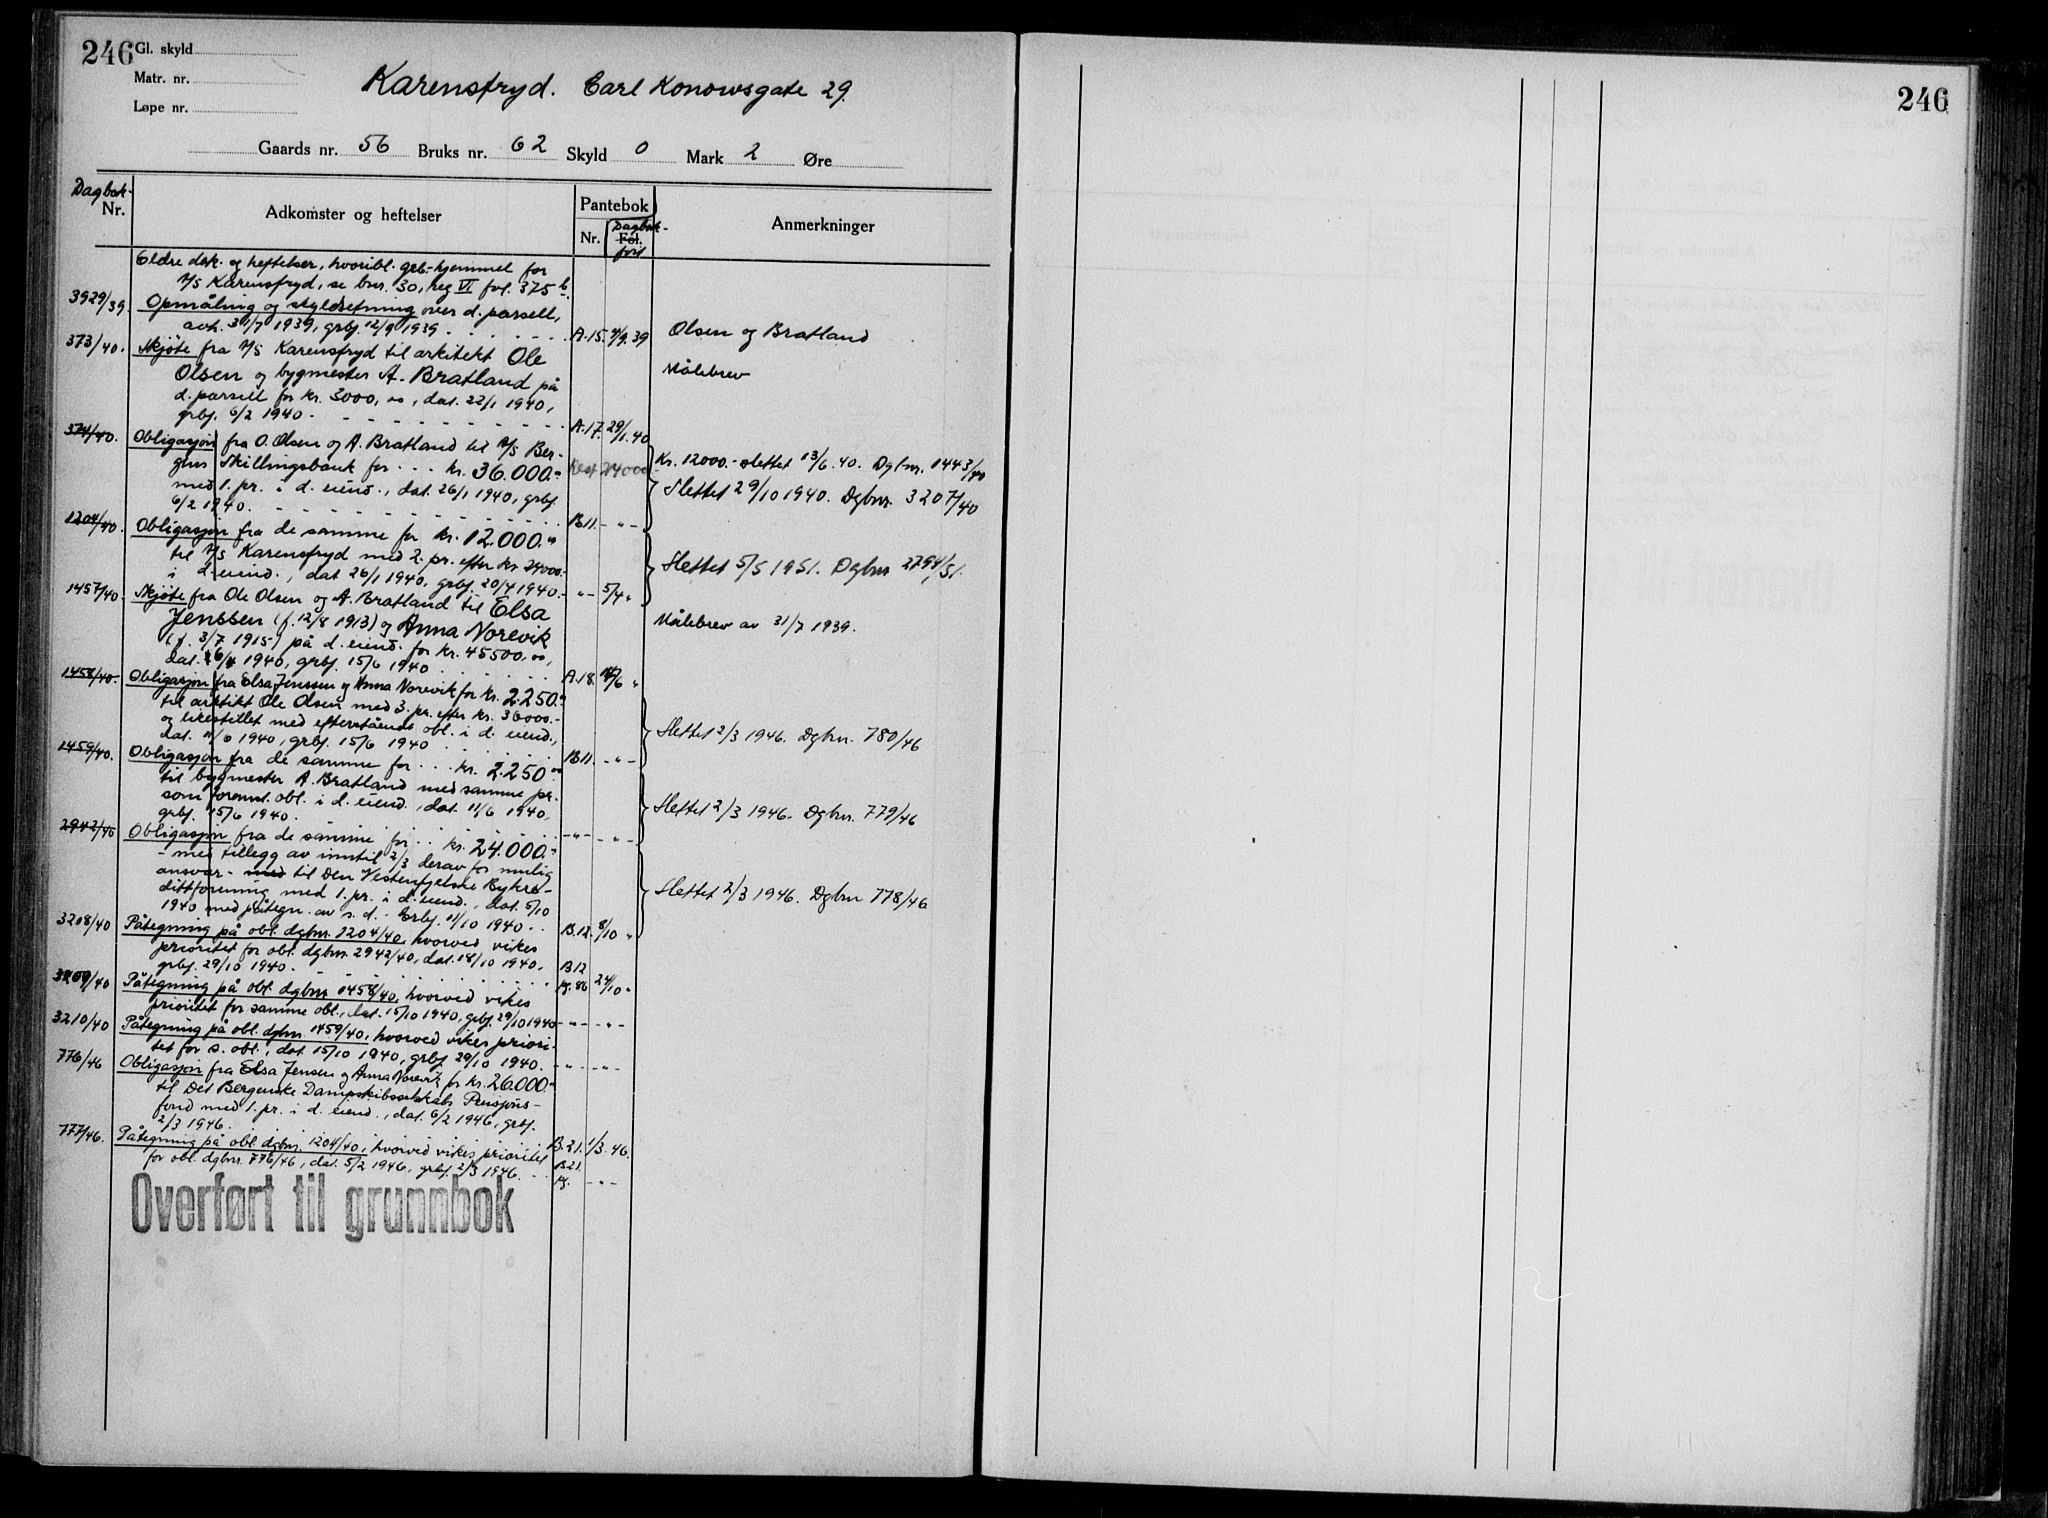 246 Gl. skyld
Matr. nr.
Løpe nr.
Karensfryd. Carl Konowsgate 29.
Gaards nr. 56 Bruks nr. 62 Skyld 0 Mark 2 Øre
Dagbok-
Nr.
Adkomster og heftelser
Pantebok
Nr.
Fol.
Dagbok-
ført
Anmerkninger
Eldre dok. og heftelser, hvoribl. grb.-hjemmel for
A/S Karensfryd, se bnr. 30, reg VI fol. 375 b.
3929/39 Opmåling og skyldsetning over d. parsell,
avh. 31/7 1939, grbf. 12/9 1939 A.15. 4/9.39 Olsen og Bratland
373/40. Skjøte fra A/S Karensfryd til arkitekt Ole
Olsen og bygmester A. Bratland på Målebrev
d. parsell for kr. 3000,00, dat. 22/1 1940,
grbf. 6/2 1940. A.17. 29/1.40
374/40. Obligasjon fra O. Olsen og A. Bratland til A/S Ber-
gens Skillingsbank for kr. 36.000.- Rest 24000.- Kr. 12000.- slettet 13/6.40. Dgbnr. 1443/40
med 1. pr. i d. eiend., dat. 26/1 1940, grbf. Slettet 29/10 1940. Dgbnr. 3207/40
6/2 1940. B.11. - " -
1204/40. Obligasjon fra de samme for kr. 12.000.-
til A/S Karensfryd med 2. pr. efter kr. 24000.- Slettet 5/5 1951. Dgbnr 2794/51.
i d. eiend., dat 26/1 1940, grbf. 20/4 1940. - " - 5/4 "
1457/40. Skjøte fra Ole Olsen og A. Bratland til Elsa
Jenssen (f. 12/8 1913) og Anna Norevik Målebrev av 31/7 1939.
(f. 3/7 1915) på d. eiend. for kr. 45500,00,
1940, grbf. 15/6 1940 A.18. /6 "
1458/40. Obligasjon fra Elsa Jenssen og Anna Norevik for kr. 2.250.-
til arkitekt Ole Olsen med 3. pr. efter kr. 36000.-
og likestillet med efterstående obl. i d. eiend., Slettet 2/3 1946. Dgbnr. 780/46
dat. 11/6 1940, grbf. 15/6 1940 B.11. - " -
1459/40. Obligasjon fra de samme for kr. 2.250.-
til bygmester A. Bratland med samme pr.
som forannt. obl. i d. eiend., dat. 11/6 1940, Slettet 2/3 1946. Dgbnr. 779/46
grbf. 15/6 1940. - " - - " -
2942/40 Obligasjon fra de samme for kr. 24.000.-
- med tillegg av inntil 2/3 derav for mulig
ansvar - med til Den Vestenfjelske Bykre-
dittforening med 1. pr. i d. eiend., dat. 5/10 Slettet 2/3 1946. Dgbnr 778/46
1940 med påtegn. av s. d. Grbf. 11/10 1940 B.12. 8/10 "
3208/40 Påtegning på obl. dgbnr. 1204/40, hvorved vikes
prioritet for obl. dgbnr. 2942/40, dat. 18/10 1940,
grbf. 29/10 1940. B12 86 24/10 "
3209/40 Påtegning på obl. dgbnr 1458/40, hvorved vikes
prioritet for samme obl., dat. 15/10 1940, grbf. 29/10 1940 - " - - " -
3210/40 Påtegning på obl. dgbnr. 1459/40, hvorved vikes priori-
tet for s. obl., dat 15/10 1940, grbf. 29/10 1940. - " - - " -
776/46 Obligasjon fra Elsa Jensen og Anna Norevik for kr. 26.000.-
til Det Bergenske Dampskibsselskabs Pensjons-
fond med 1. pr. i d. eiend., dat. 6/2 1946, grbf.
2/3 1946. B.21. 1/3.46.
777/46. Påtegning på obl. dgbnr. 1204/40, hvorved vikes prioritet
for obl. dgbnr. 776/46, dat. 5/2 1946, grbf. 2/3 1946. B21. - " -
Overført til grunnbok
246